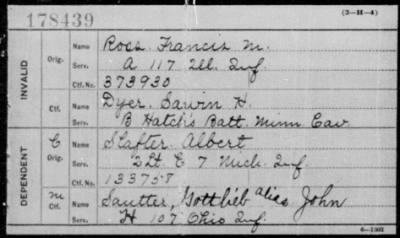 178439
(3-H-4)
INVALID
Orig.
Name Ross Francis M.
Serv. A 117 Ill. Inf.
Ctf. No. 373930
Ctf.
Name Dyer, Sarvin H.
Serv. B Hatch's Batt. Minn Cav
DEPENDENT
C
Orig.
Name Slafter Albert
Serv. 2 Lt. E 7 Mich. Inf.
Ctf. No. 133758
M
Ctf.
Name Sautter, Gottlieb alias John
Serv. H 107 Ohio Inf.